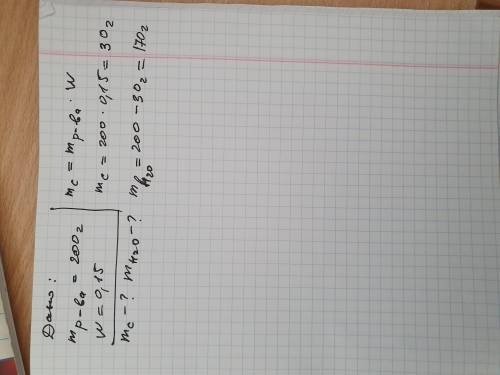 Дано:
m р-ва = 200г
W = 0,15
mc -? mH2O -?
mc = m р-ва · W
mc = 200 · 0,15 = 30г
mв H2O = 200 - 30г = 170г